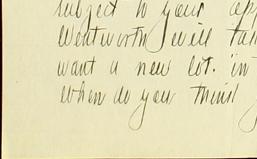 subject to your app
Wentworth will tak
want a new lot. in
when do you think